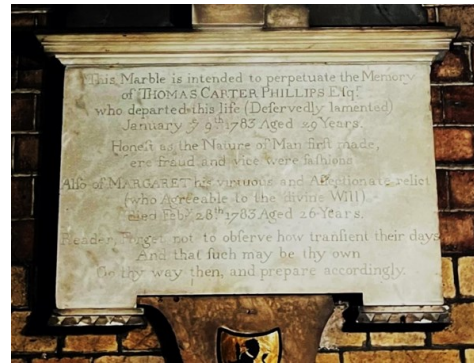 This Marble is intended to perpetuate the Memory
of THOMAS CARTER PHILLIPS Esqr.
who departed this life (Deservedly lamented)
January ye 9th 1783 Aged 29 Years.
Honest as the Nature of Man first made,
ere fraud and vice were fashions
Also of MARGARET his virtuous and Affectionate relict
(who Agreeable to the divine Will)
died Feby 28th 1783 Aged 26 Years.
Reader, Forget not to observe how transient their days
And that such may be thy own
Go thy way then, and prepare accordingly.